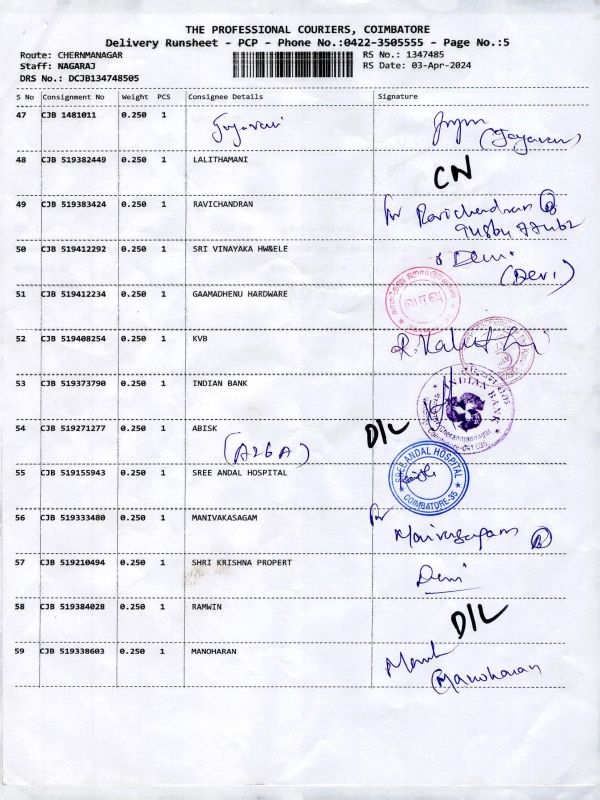 THE PROFESSIONAL COURIERS, COIMBATORE
Delivery Runsheet - PCP - Phone No.:0422-3505555 - Page No.:5
Route: CHERNMANAGAR RS No.: 1347485
Staff: NAGARAJ RS Date: 03-Apr-2024
DRS No.: DCJB134748505
S No Consignment No Weight PCS Consignee Details Signature
47 CJB 1481011 0.250 1
48 CJB 519382449 0.250 1 LALITHAMANI CN
49 CJB 519383424 0.250 1 RAVICHANDRAN Ravichandran
50 CJB 519412292 0.250 1 SRI VINAYAKA HW&ELE Devi
(Devi)
51 CJB 519412234 0.250 1 GAAMADHENU HARDWARE
52 CJB 519408254 0.250 1 KVB
53 CJB 519373790 0.250 1 INDIAN BANK INDIAN BANK
54 CJB 519271277 0.250 1 ABISK D/L
(A2BA)
55 CJB 519155943 0.250 1 SREE ANDAL HOSPITAL SREE ANDAL HOSPITAL
COIMBATORE-35
56 CJB 519333480 0.250 1 MANIVAKASAGAM
57 CJB 519210494 0.250 1 SHRI KRISHNA PROPERT Devi
58 CJB 519384028 0.250 1 RAMWIN D/L
59 CJB 519338603 0.250 1 MANOHARAN
(Manoharan